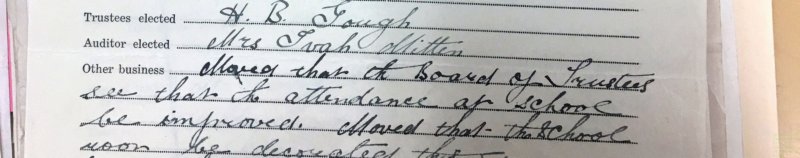 Trustees elected H. B. Gough
Auditor elected Mrs Ivah Mitten
Other business Moved that th Board of Trustees
see that th attendance at School
be improved. Moved that the School
room be decorated this